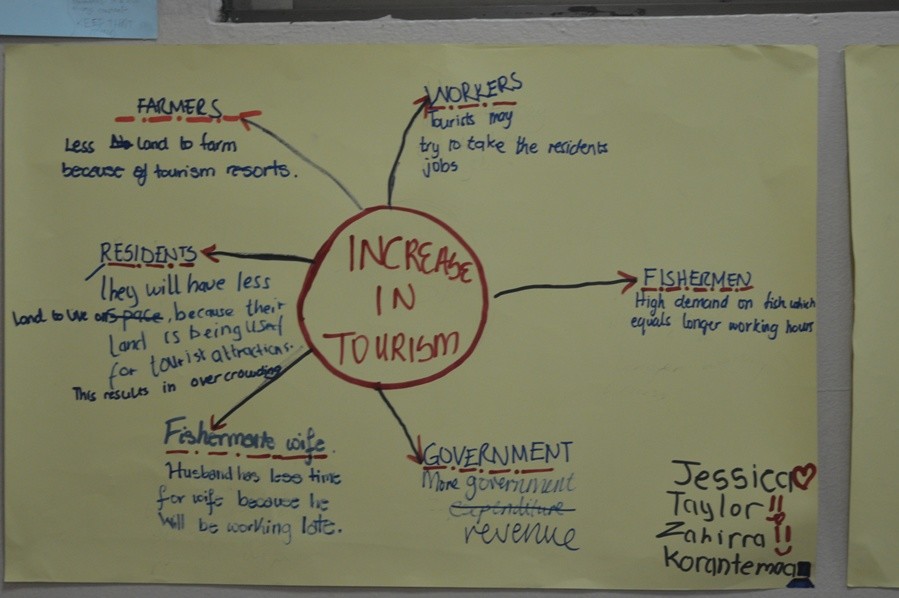 FARMERS
Less land to farm
because of tourism resorts.
WORKERS
Tourists may
try to take the residents
jobs
RESIDENTS
They will have less
land to use or space, because their
land is being used
for tourist attractions.
This results in overcrowding
INCREASE
IN
TOURISM
FISHERMEN
High demand on fish which
equals longer working hours
Fisherman wife
Husband has less time
for wife because he
will be working late.
GOVERNMENT
More government
expenditure
revenue
Jessica
Taylor!!
Zahirra!!
Korantemaa